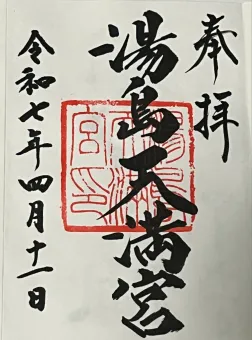 奉拝
湯島天満宮
令和七年四月十一日